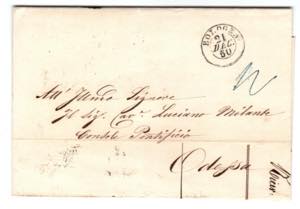 BOLOGNA
21
DEC.
60
All' Illmo Signore
Il Sig. Cav. Luciano
Console Pontificio
Odessa